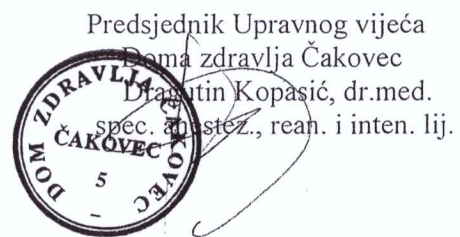 Predsjednik Upravnog vijeća
Doma zdravlja Čakovec
Dragutin Kopasić, dr.med.
spec. anestez., rean. i inten. lij.
DOM ZDRAVLJA ČAKOVEC
ČAKOVEC
5